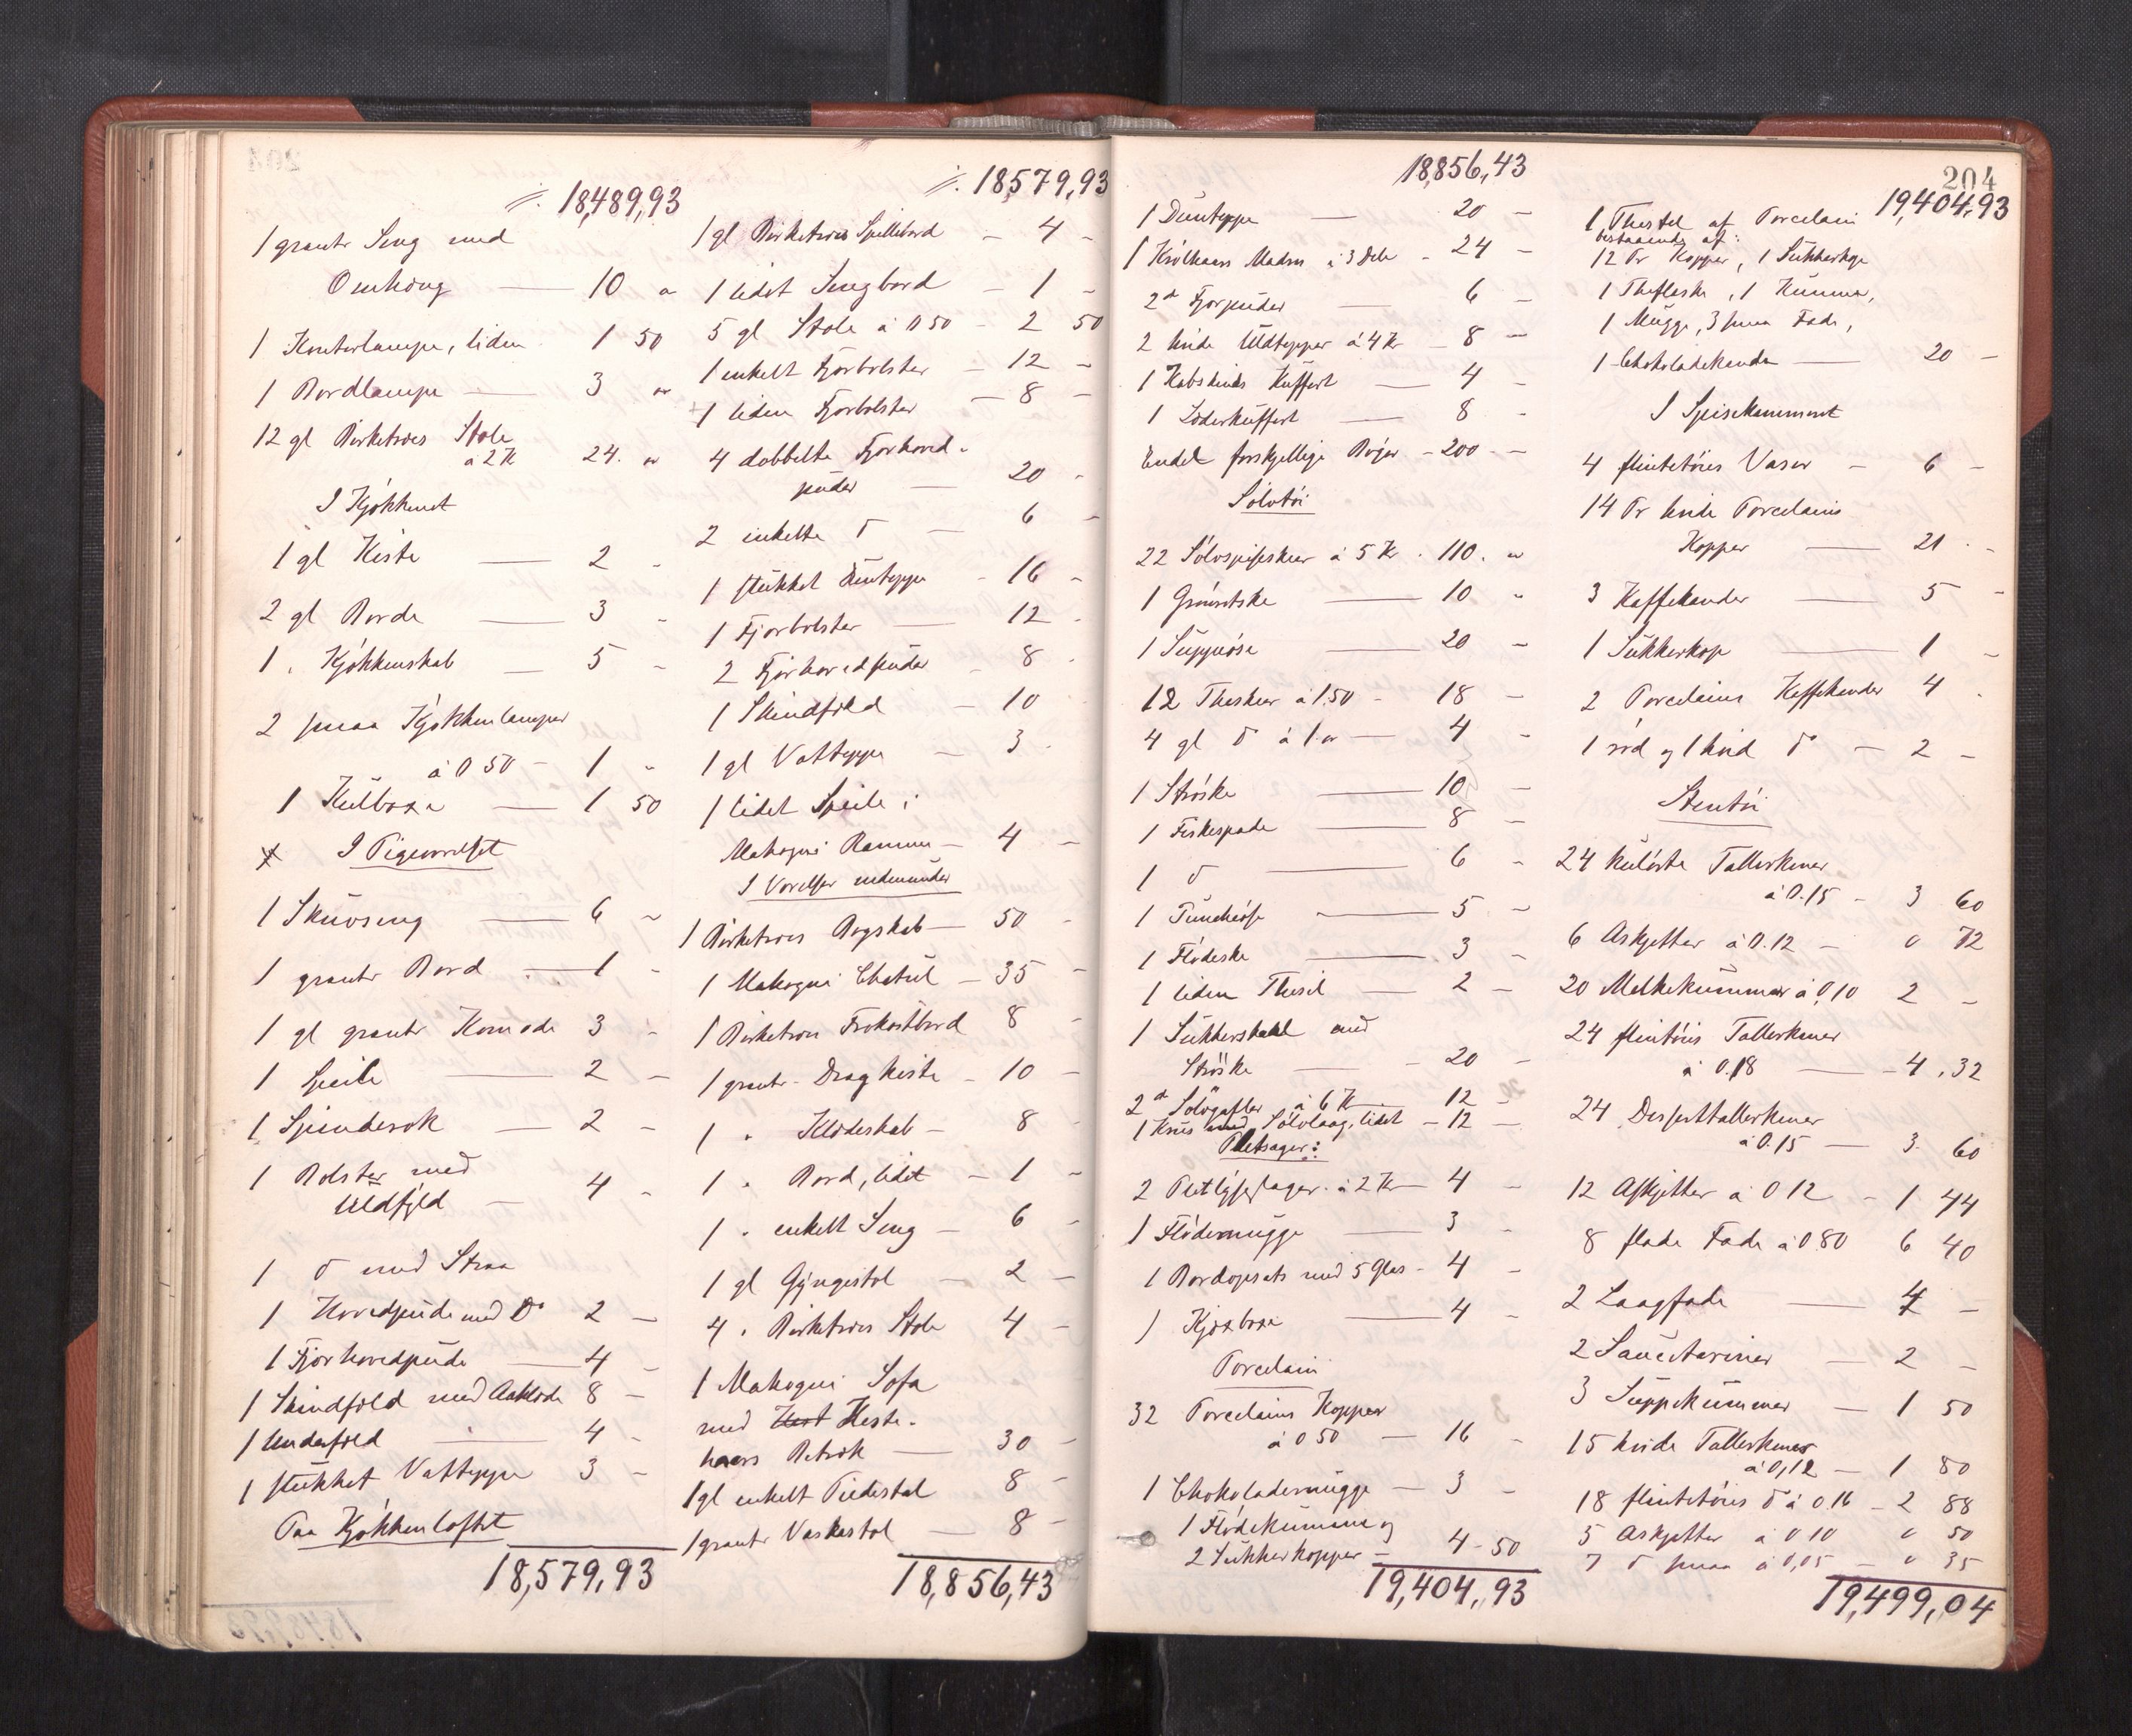 18,489,93
1 grantr Seng med
Omhæng — 10 "
1 Kontorlampe, liden 1 50
1 Bordlampe — 3 "
12 gl Birketræes Stole
à 2 Kr 24. "
I Kjøkkenet
1 gl Kiste — 2 -
2 gl Borde — 3 -
1 " Kjøkkenskab — 5 -
2 smaa Kjøkkenlamper
à 0 50 - 1 "
1 Kulboxe — 1 50
I Pigeværelset
1 Skuvseng — 6 -
1 grantr Bord — 1 -
1 gl grantr Komode 3 -
1 Speile — 2 -
1 Spinderok — 2 -
1 Bolster med
Uldfyld — 4 -
1 do med Straa
1 Hovedpude med Do 2 -
1 Fjærhovedpude — 4 -
1 Skindfeld med Aaklæde 8 -
1 Underfeld — 4 -
1 stukket Vatteppe 3 -
Paa Kjøkkenloftet
18,579,93
18,579,93
1 gl Birketræes Spillebord - 4 -
1 lidet Sengbord - 1 -
5 gl Stole à 0 50 - 2 50
1 enkelt Fjærbolster - 12 -
1 liden Fjærbolster - 8 -
4 dobbelte Fjærhoved-
puder — 20 -
2 enkelte do — 6 -
1 stukket Duunteppe - 16 -
1 Fjærbolster — 12 -
2 Fjærhovedpuder - 8 -
1 Skindfeld - 10
1 gl Vatteppe - 3 -
1 lidet Speile i
Mahogni Ramme - 4 -
I Værelser nedenunder
1 Birketræes Bogskab - 50 -
1 Mahogni Chatul - 35 -
1 Birketræes Frokostbord 8 -
1 grantr. Dragkiste - 10 -
1 " Klædeskab - 8 -
1 " Bord, lidet - 1 -
1 " enkelt Seng - 6 -
1 gl Gyngestol - 2 -
4 " Birketræes Stole 4 -
1 Mahogni Sofa
med Heste-
haars Betræk — 30 -
1 gl enkelt Piedestal 8 -
1 grantr Vaskestol — 8 -
18,856,43
18,856,43
1 Duunteppe — 20 -
1 Krølhaars Madras i 3 Dele - 24 -
2 do Fjærpuder — 6 -
2 hvide Uldtepper à 4 Kr - 8 -
1 Kobskinds Kuffert — 4 -
1 Læderkuffert — 8 -
Endel forskjellige Bøger - 200 -
Sølvtøi
22 Sølvspiseskeer à 5 Kr. 110. "
1 Grødske — 10 "
1 Suppeøse — 20 -
12 Theskeer à 1.50 - 18 -
4 gl do à 1. " — 4 -
1 Strøske — 10 -
1 Fiskespade — 8 -
1 do — 6 -
1 Puncheøse — 5 -
1 Flødeske — 3 -
1 liden Thesil — 2 -
1 Sukkerskaal med
Strøske — 20 -
2 do Sølvgafler à 6 Kr 12 -
1 Krus med Sølvlaag, lidet - 12 -
Pletsager:
2 Pletlysestager à 2 Kr - 4 -
1 Flødemugge — 3 -
1 Bordopsats med 5 Glas - 4 -
1 Kjexboxe — 4 -
Porcelain
32 Porcelains Kopper
à 0 50 — 16 -
1 Chokolademugge — 3 -
1 Flødekumme og
2 Sukkerkopper — 4-50
19,404,93
204
19,404,93
1 Thestel af Porcelain
bestaaende af:
12 Pr Kopper, 1 Sukkerkop
1 Theflaske, 1 Kumme,
1 Mugge, 3 smaa Fade,
1 Chokoladekande — 20 -
I Spisekammeret
4 flintetøies Vaser - 6 -
14 Pr hvide Porcelains
Kopper — 21 -
3 Kaffekander — 5 -
1 Sukkerkop — 1 -
2 Porcelains Kaffekander 4 -
1 rød og 1 hvid do - 2 -
Stentøi
24 kulørte Tallerkener
à 0.15 - 3 60
6 Asjetter à 0.12 - 0 72
20 Melkekummer à 0,10 2 -
24 flintøies Tallerkener
à 0.18 — 4,32
24 Desserttallerkener
à 0.15 — 3. 60
12 Assjetter à 0 12 - 1 44
8 flade Fade à 0.80 6 40
2 Laagfade — 4 -
2 Saucetariner — 2 -
3 Suppekummer — 1 50
15 hvide Tallerkener
à 0,12 — 1 80
18 flintetøies do à 0.16 - 2 88
5 Asjetter à 0 10 0 50
7 do smaa à 0,05 - 0 35
19,499,04